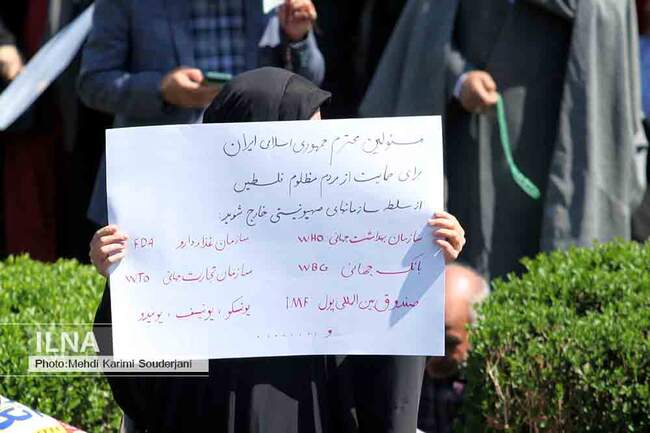 مسئولین محترم جمهوری اسلامی ایران
برای حمایت از مردم مظلوم فلسطین
از سلطه سازمانهای صهیونیستی خارج شوید:
سازمان بهداشت جهانی WHO سازمان غذا و دارو FDA
بانک جهانی WBG سازمان تجارت جهانی WTO
صندوق بین المللی پول IMF یونسکو ، یونیسف ،
و ........
ILNA
Photo:Mehdi Karimi Souderjani